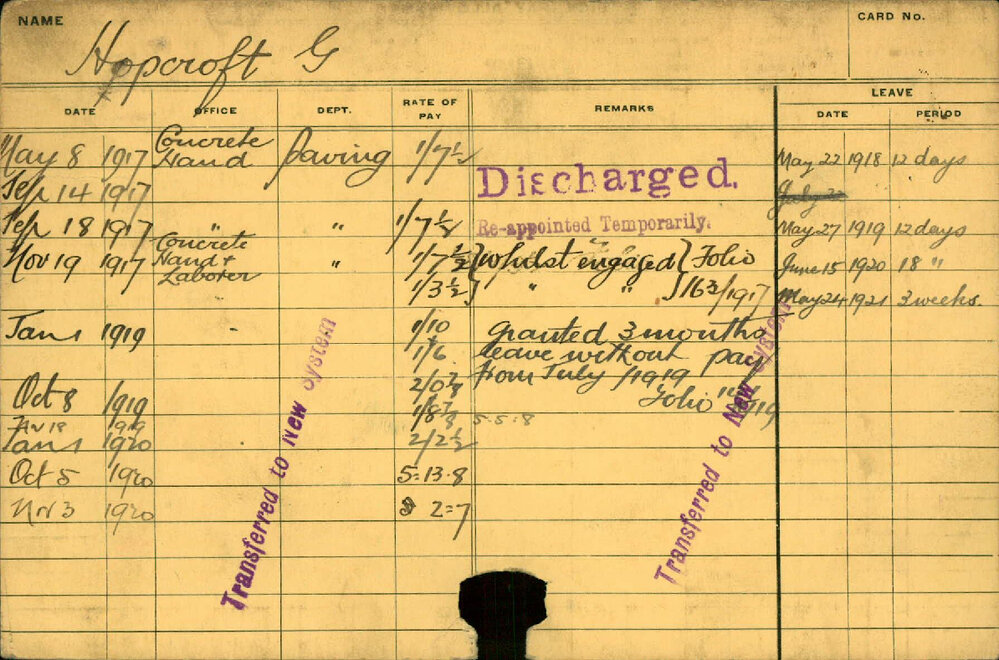 NAME
CARD No.
Hopcroft G
LEAVE
DATE OFFICE DEPT. RATE OF PAY REMARKS DATE PERIOD
May 8 1917 Concrete Hand Paving 1/7½ May 22 1918 12 days
Discharged.
Sep 14 1917 July 22
Sep 18 1917 " " 1/7½ Re-appointed Temporarily. May 27 1919 12 days
Nov 19 1917 Concrete Hand & Laborer " 1/7½ } whilst engaged } Folio June 15 1920 18 "
1/3½ } " " } 163/1917 May 24 1921 3 weeks.
Jan 1 1919 1/10 granted 3 months
1/6 leave without pay
2/0⅞ from July /1919
Oct 8 1919 1/8⅞ Folio
Nov 18 1919 5.5.8
Jan 1 1920 2/2½
Oct 5 1920 5=13.8
Nov 3 1920 2=7
Transferred to New System
Transferred to New System